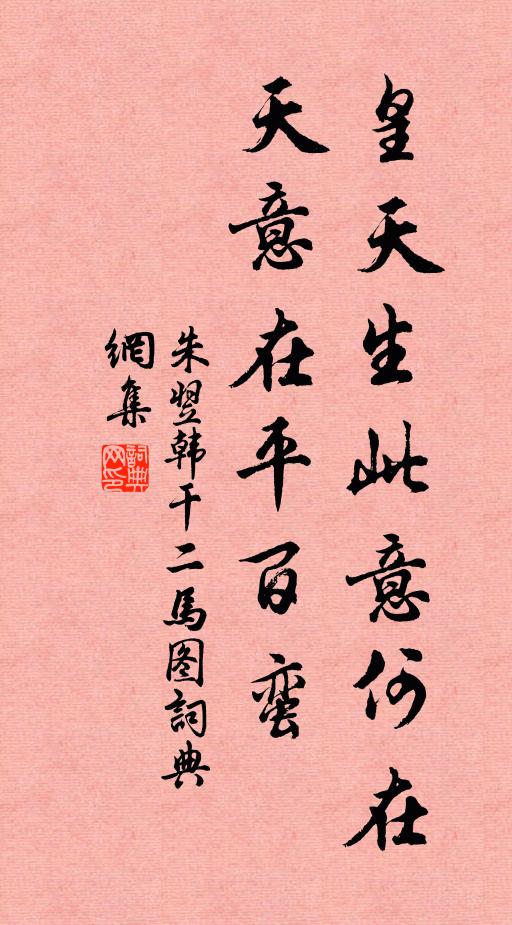 皇天生此意何在
天意在平百蛮
朱翌韩干二馬图詞典
網集
詞典
网印